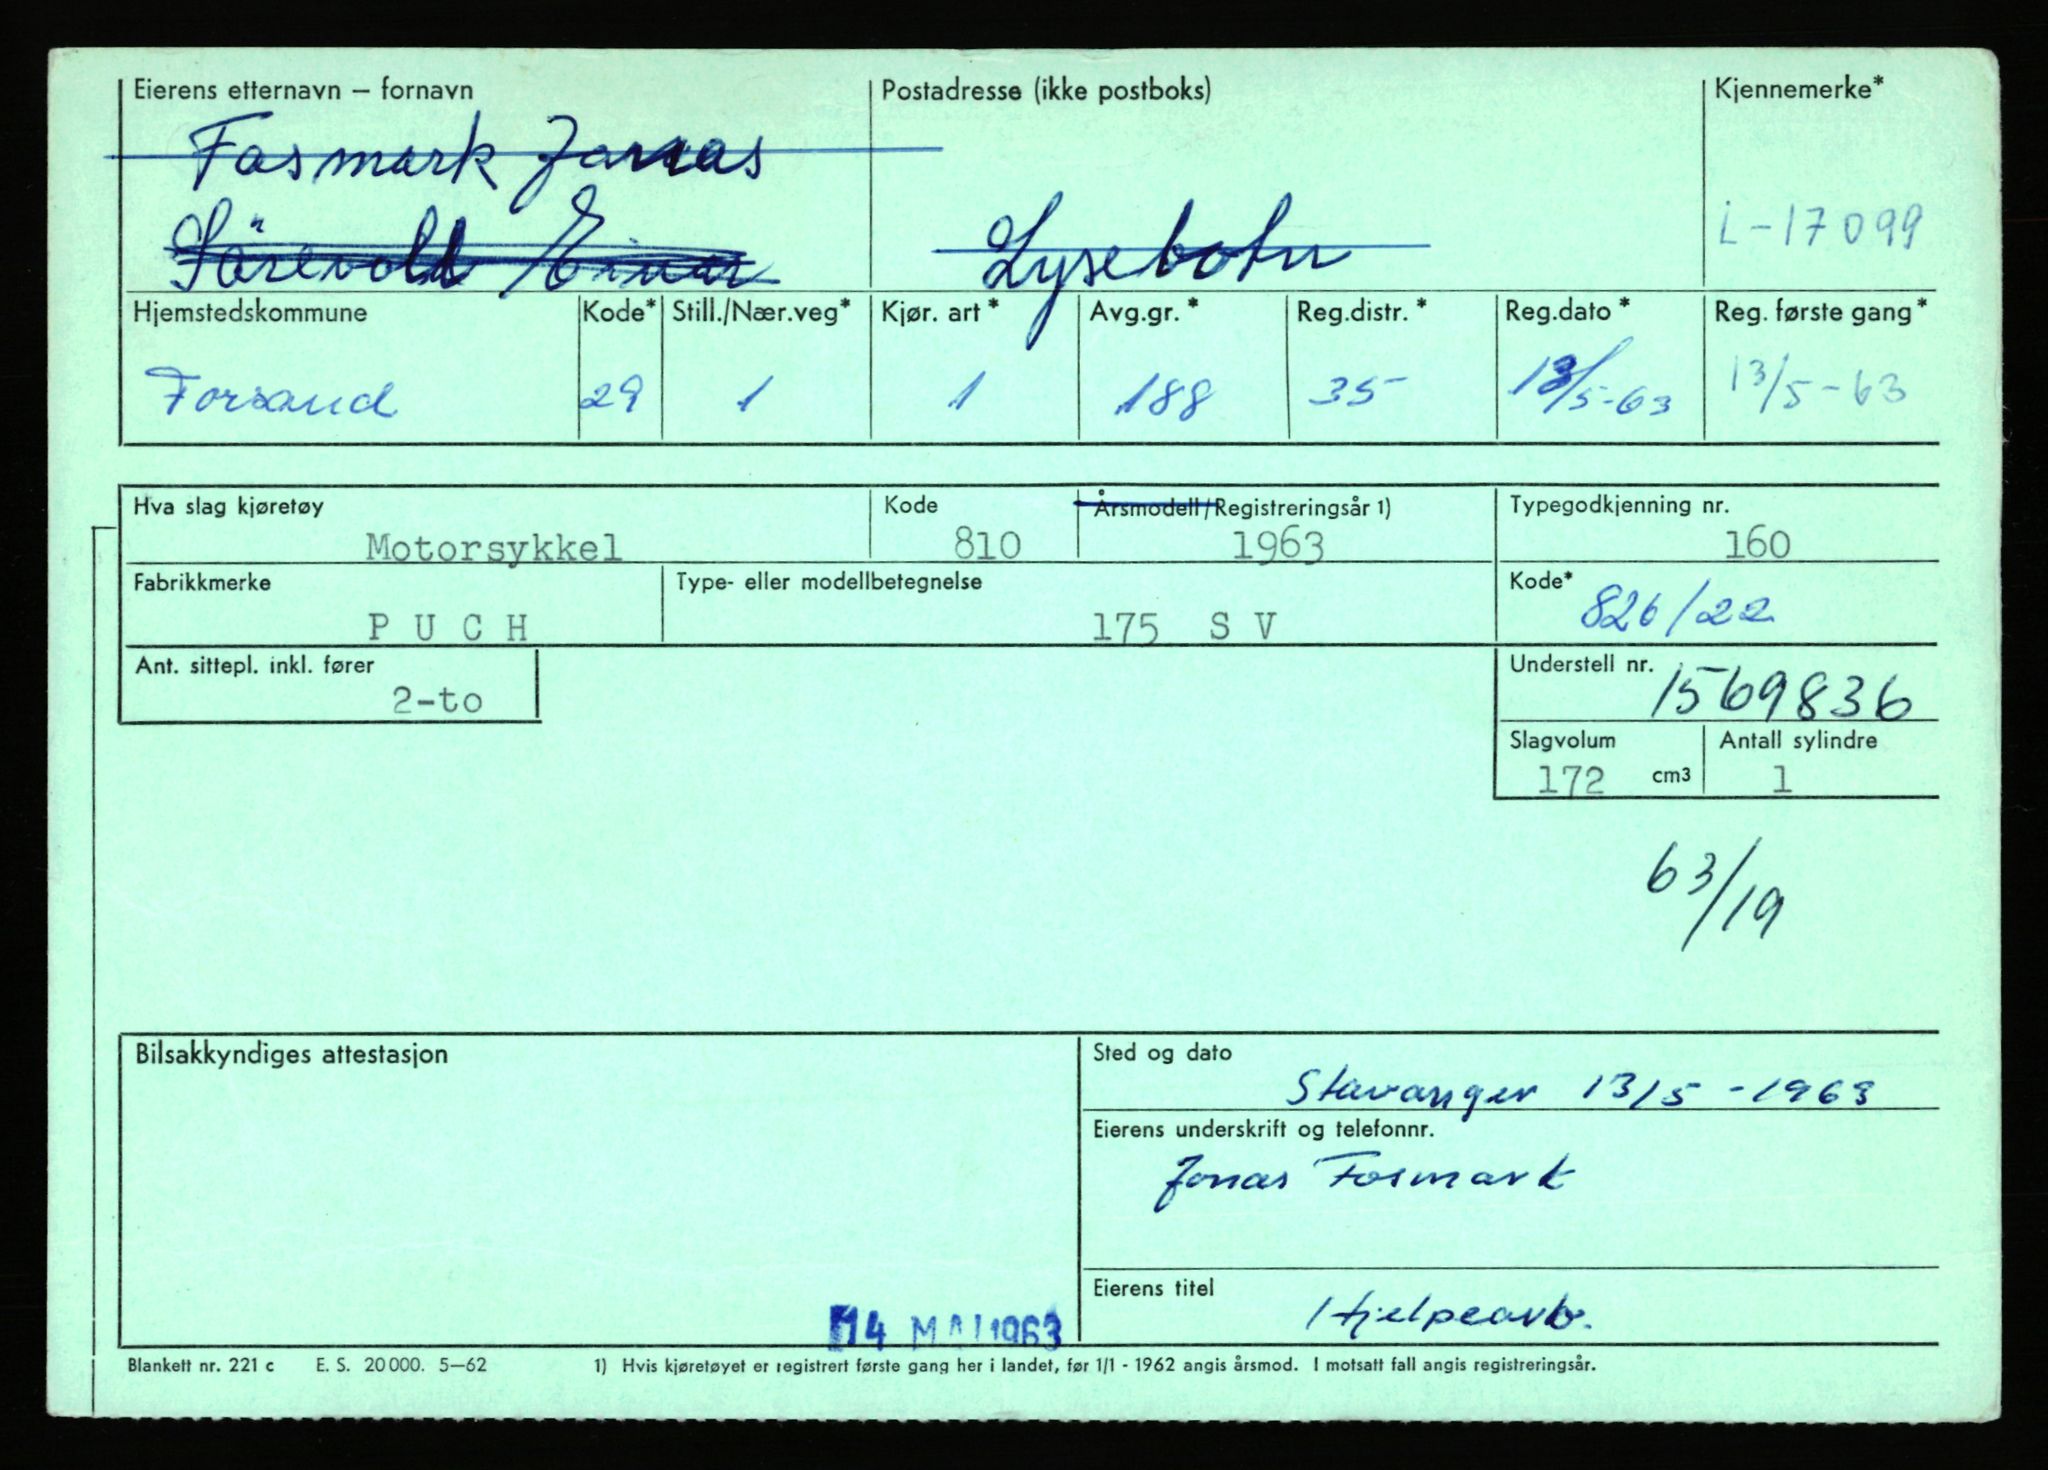 Eierens etternavn — fornavn
Postadresse (ikke postboks)
Kjennemerke*
Fosmark Jonas
Sørevold Einar
Lysebotn
L-17099
Hjemstedskommune Kode* Still./Nær.veg* Kjør. art* Avg.gr.* Reg.distr.* Reg.dato* Reg. første gang*
Forsand 29 1 1 188 35 13/5-63 13/5-63
Hva slag kjøretøy Kode Årsmodell/Registreringsår 1) Typegodkjenning nr.
Motorsykkel 810 1963 160
Fabrikkmerke Type- eller modellbetegnelse Kode*
PUCH 175 SV 826/22
Ant. sittepl. inkl. fører Understell nr.
2-to 1569836
Slagvolum Antall sylindre
172 cm3 1
63/19
Bilsakkyndiges attestasjon
Sted og dato
Stavanger 13/5-1963
Eierens underskrift og telefonnr.
Jonas Fosmark
Eierens titel
Hjelpearb.
14 MAI 1963
Blankett nr. 221 c E. S. 20 000. 5—62 1) Hvis kjøretøyet er registrert første gang her i landet, før 1/1 - 1962 angis årsmod. I motsatt fall angis registreringsår.